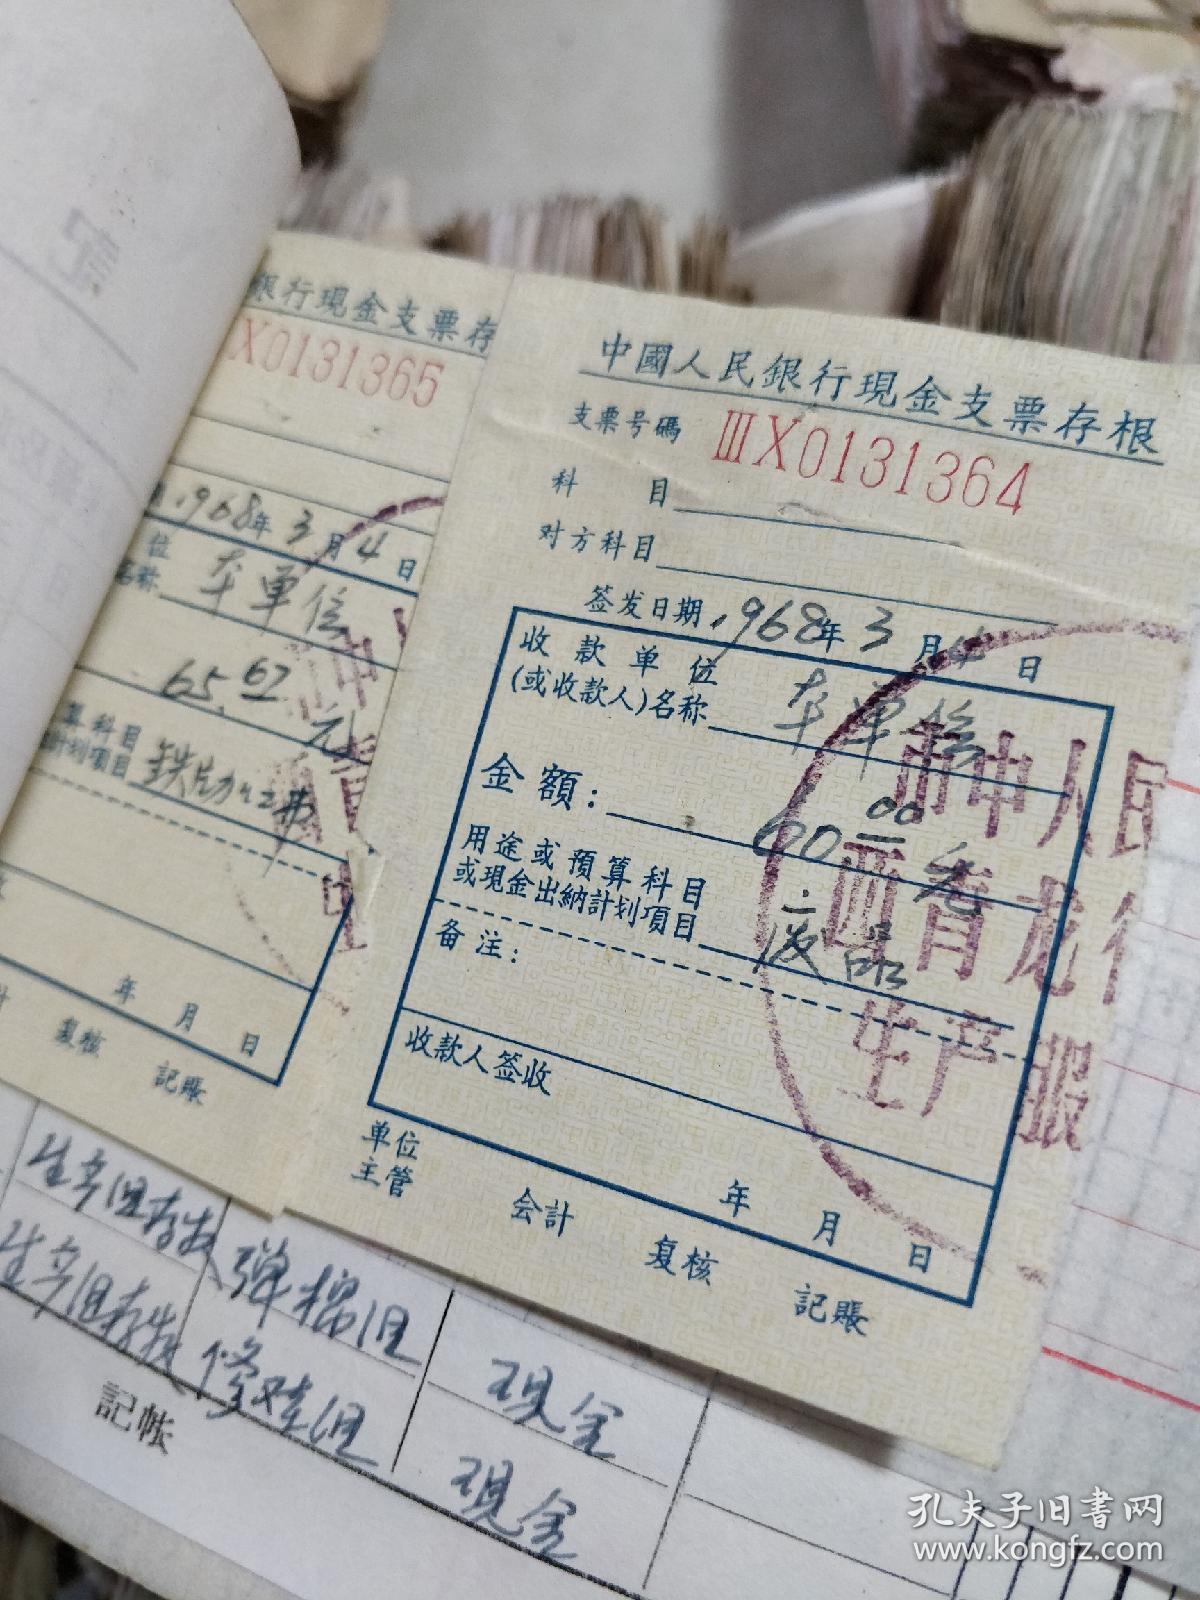 銀行現金支票存
X0131365
1968年3月4日
位
名称 本单位
65.67
元
算科目
計划項目 铁片加工费
年 月 日
計 复核 記賬
中國人民銀行現金支票存根
支票号碼 ⅢX0131364
科 目
对方科目
签发日期 1968年3月4日
收款单位
(或收款人)名称 本单位
金額: 60.00元
用途或預算科目
或現金出納計划項目 废品
备注:
收款人签收
年 月 日
单位
主管 会計 复核 記賬
市中人民
西青龙街
生产服
生产组存款 弹棉组 现金
生产组存款 修建组 现金
記帐
孔夫子旧书网
www.kongfz.com